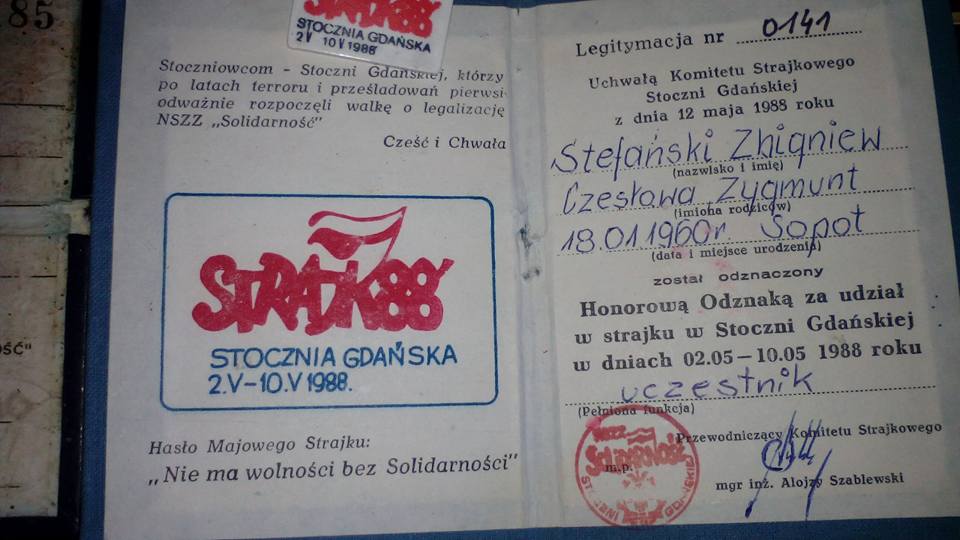 85
STRAJK88'
STOCZNIA GDAŃSKA
2.V 10V1988
Stoczniowcom - Stoczni Gdańskiej, którzy
po latach terroru i prześladowań pierwsi
odważnie rozpoczęli walkę o legalizację
NSZZ „Solidarność"
Cześć i Chwała
STRAJK88'
STOCZNIA GDAŃSKA
2.V-10.V 1988.
Hasło Majowego Strajku:
„Nie ma wolności bez Solidarności"
ość"
Legitymacja nr 0141
Uchwałą Komitetu Strajkowego
Stoczni Gdańskiej
z dnia 12 maja 1988 roku
Stefański Zbigniew
(nazwisko i imię)
Czesława Zygmunt
(imiona rodziców)
18.01 1960r. Sopot
(data i miejsce urodzenia)
został odznaczony
Honorową Odznaką za udział
w strajku w Stoczni Gdańskiej
w dniach 02.05-10.05 1988 roku
uczestnik
(Pełniona funkcja)
Przewodniczący Komitetu Strajkowego
NSZZ
Solidarność
m.p.
STOCZNI GDAŃSKIEJ
mgr inż. Alojzy Szablewski